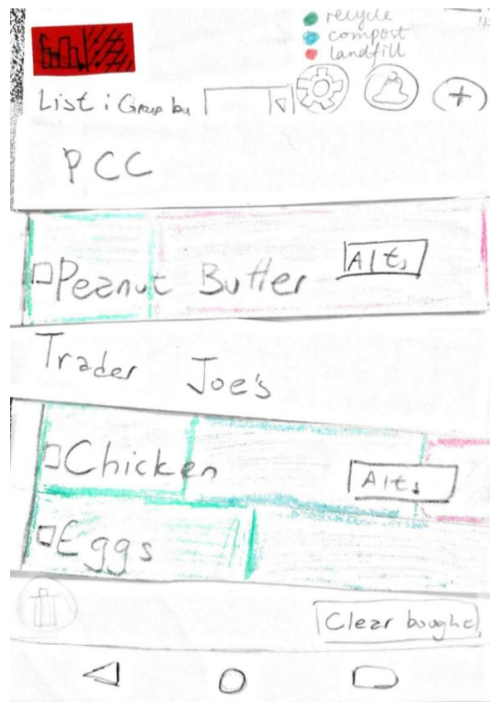 recycle
compost
landfill
List: Group by
+
PCC
Peanut Butter
Alts
Trader Joe's
Chicken
Alts
Eggs
Clear bought